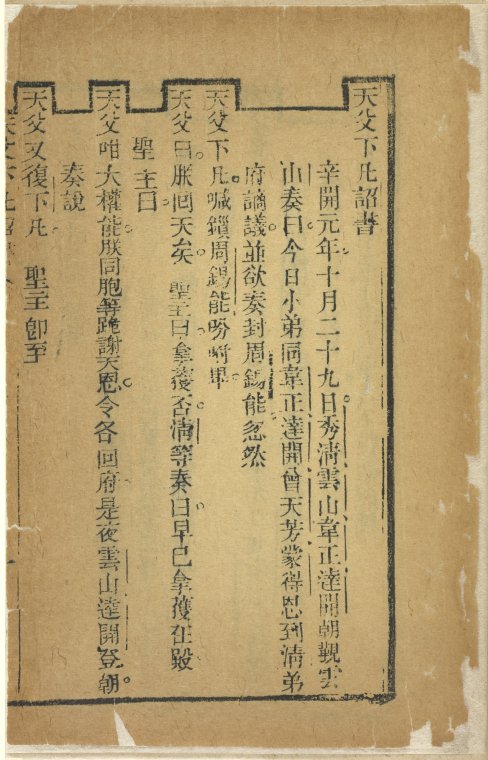 天父下凡詔書
辛開元年十月二十九日。秀清雲山韋正達開朝覲雲
山奏曰。今日小弟同韋正達開曾天芳蒙得恩到清弟
府謪議。並欲奏封周錫能。忽然
天父下凡。喊鎖周錫能。吩咐畢。
天父曰。朕回天矣。聖主曰。拿獲否。清等奏曰。早已拿獲在殿。
聖主曰
天父咁大權能。朕同胞等跪謝天恩。令各回府。是夜雲山達開登朝。
奏說
天父又復下凡 聖主卽至